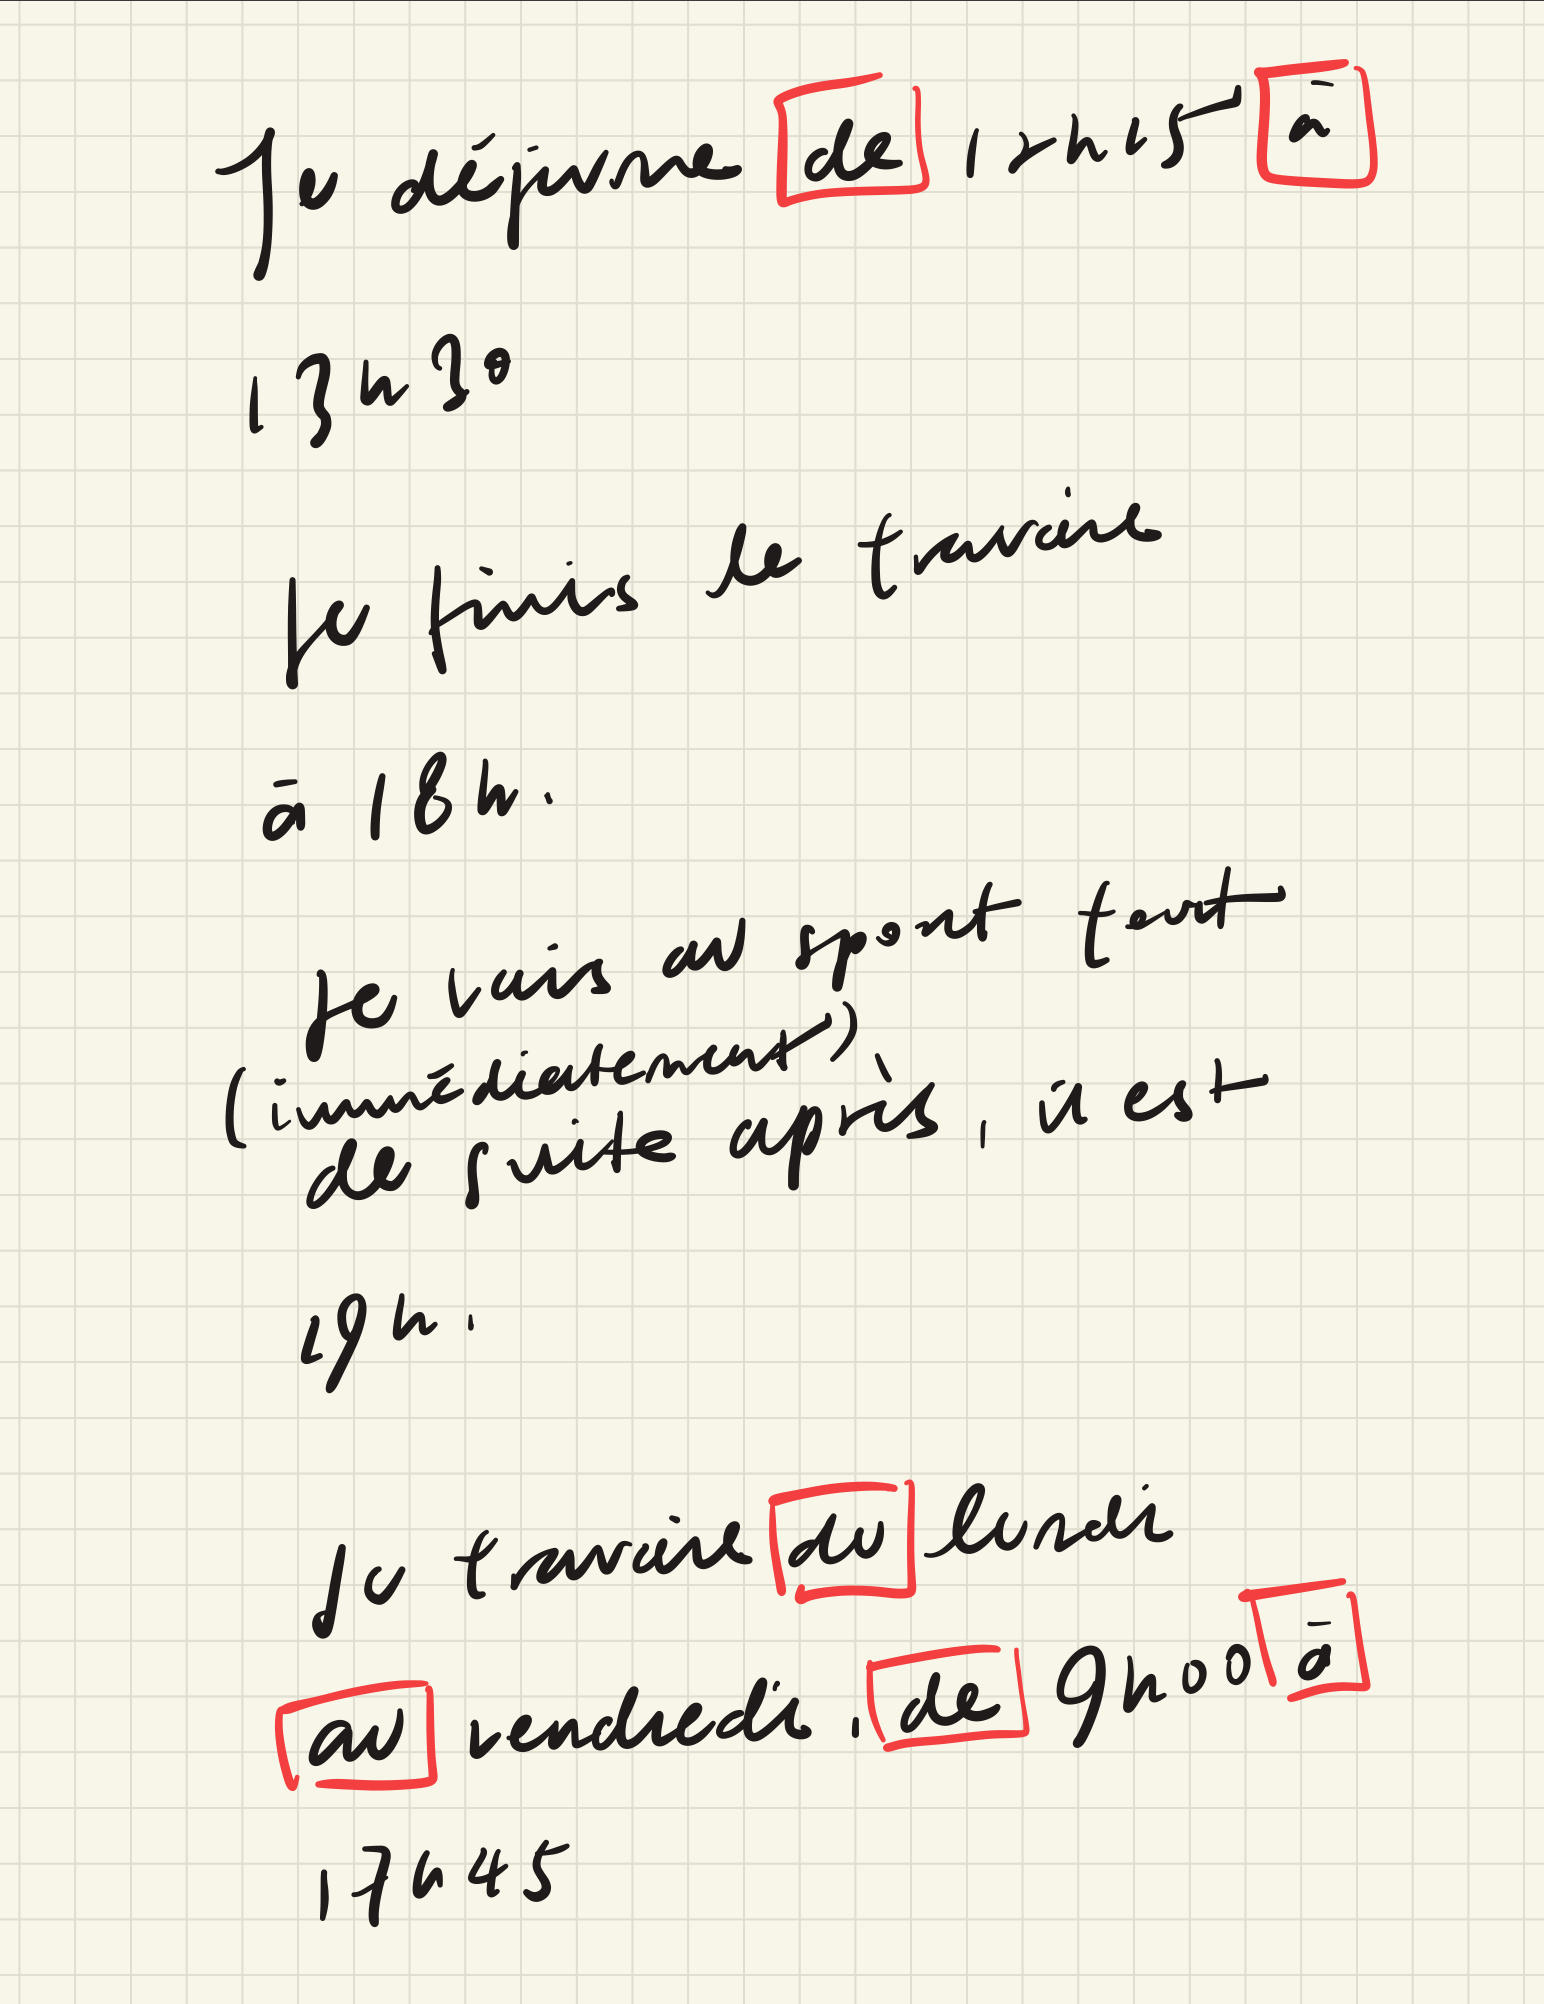 Je déjeune de 12h15 à
13h30
Je finis le travaille
à 18h.
Je vais au sport tout
(immédiatement)
de suite après, il est
19h.
Je travaille du lundi
au vendredi, de 9h00 à
17h45